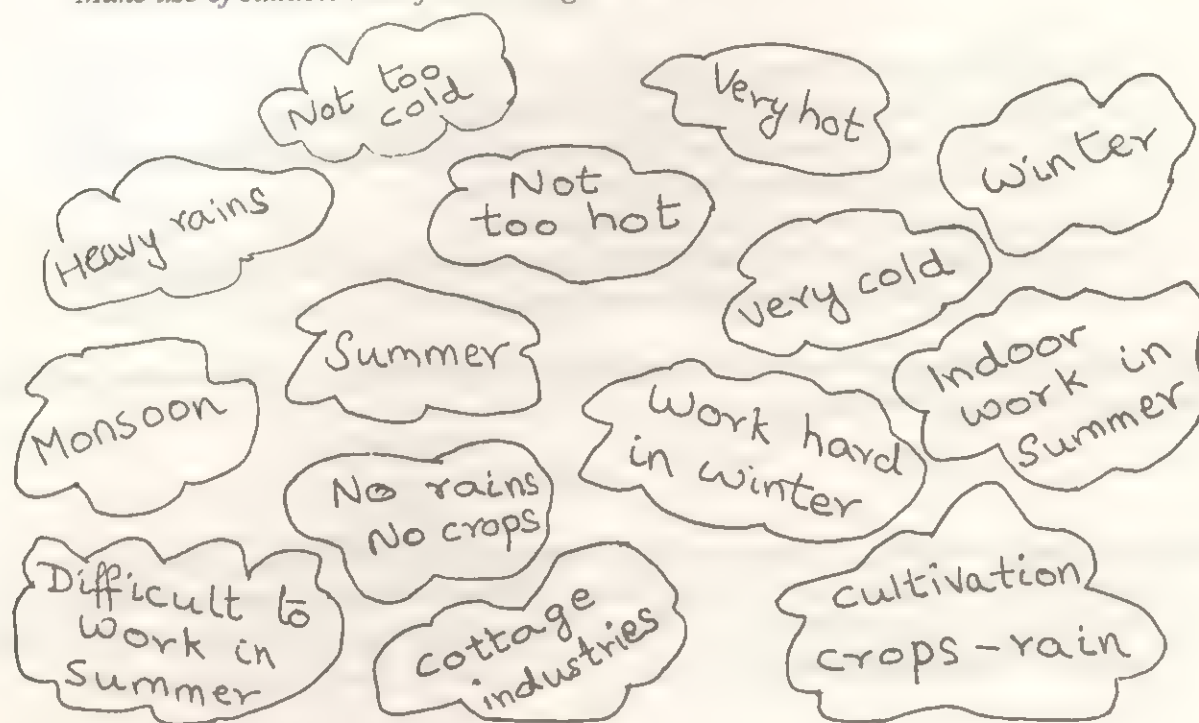 Not too
cold
Very hot
Winter
Heavy rains
Not
too hot
very cold
Summer
Indoor
work in
Summer
Monsoon
Work hard
in winter
No rains
No crops
Difficult to
work in
Summer
cottage
industries
cultivation
crops - rain